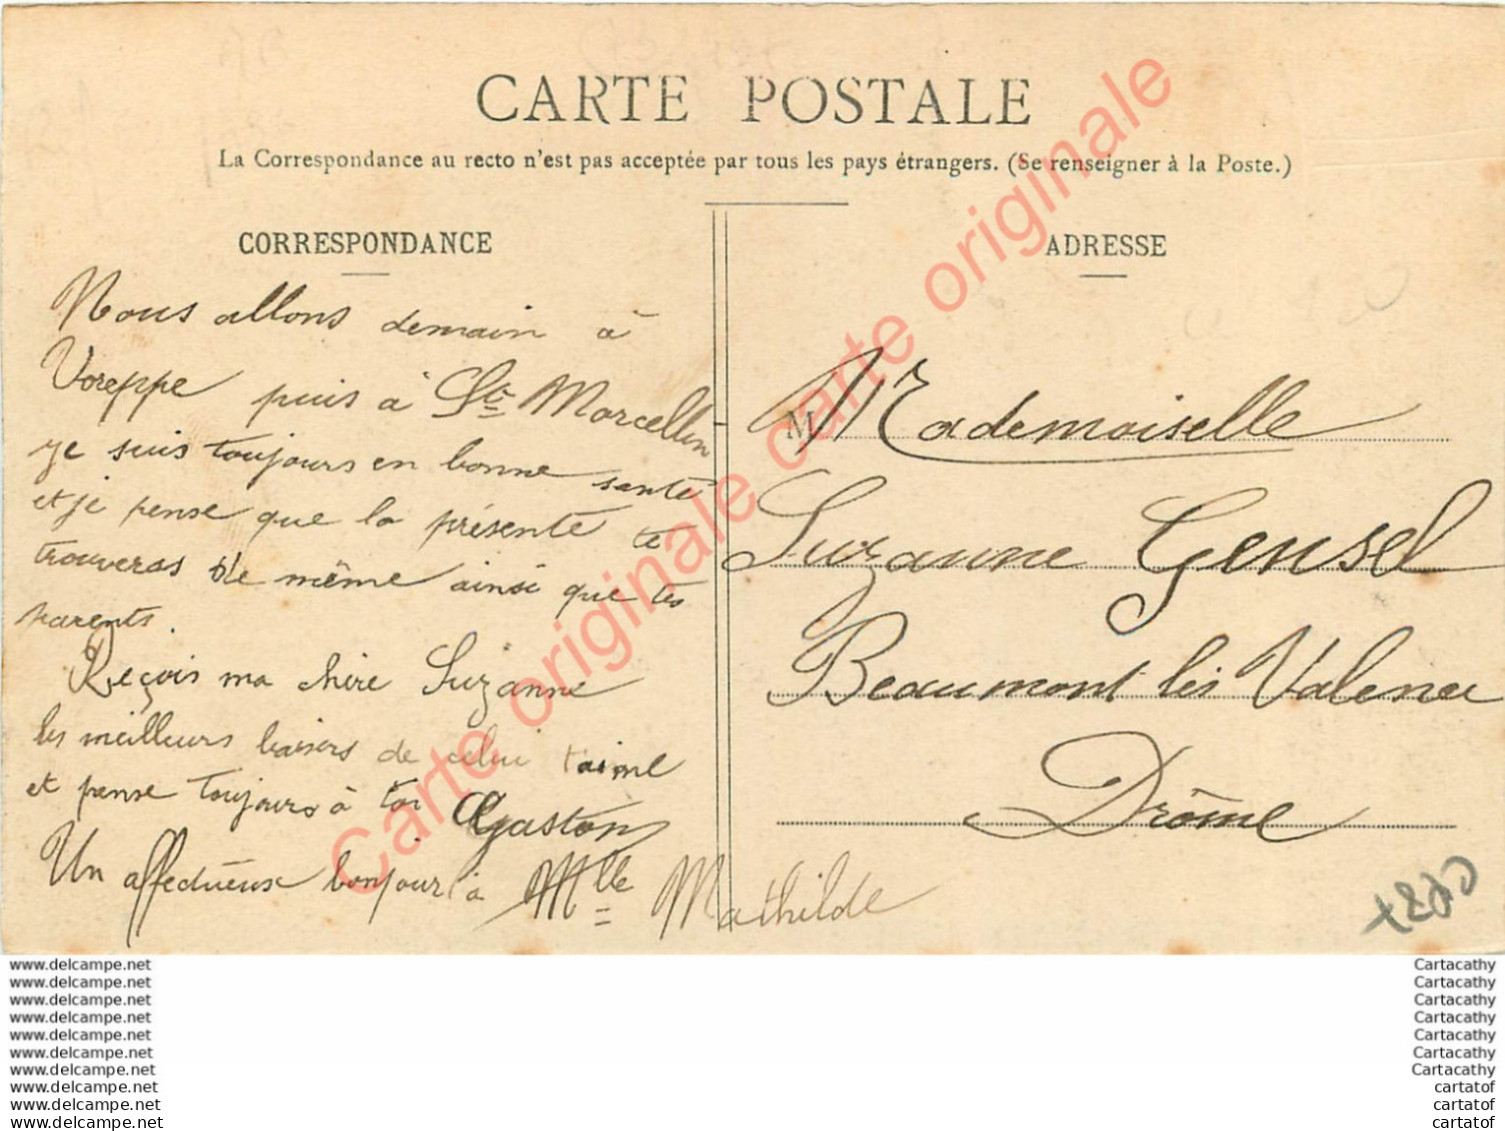 CARTE POSTALE
La Correspondance au recto n'est pas acceptée par tous les pays étrangers. (Se renseigner à la Poste.)
CORRESPONDANCE
Nous allons demain à
Voreppe puis à St Marcellin
je suis toujours en bonne santé
et je pense que la présente te
trouveras de même ainsi que tes
parents.
Reçois ma chère Suzanne
les meilleurs baisers de celui t'aime
et pense toujours à toi
Gaston
Un affectueuse bonjour à Mlle Mathilde
ADRESSE
M
Mademoiselle
Suzanne Gensel
Beaumont lès Valence
Drôme
Carte originale carte originale carte originale
www.delcampe.net
www.delcampe.net
www.delcampe.net
www.delcampe.net
www.delcampe.net
www.delcampe.net
www.delcampe.net
www.delcampe.net
www.delcampe.net
www.delcampe.net
Cartacathy
Cartacathy
Cartacathy
Cartacathy
Cartacathy
Cartacathy
Cartacathy
cartatof
cartatof
cartatof